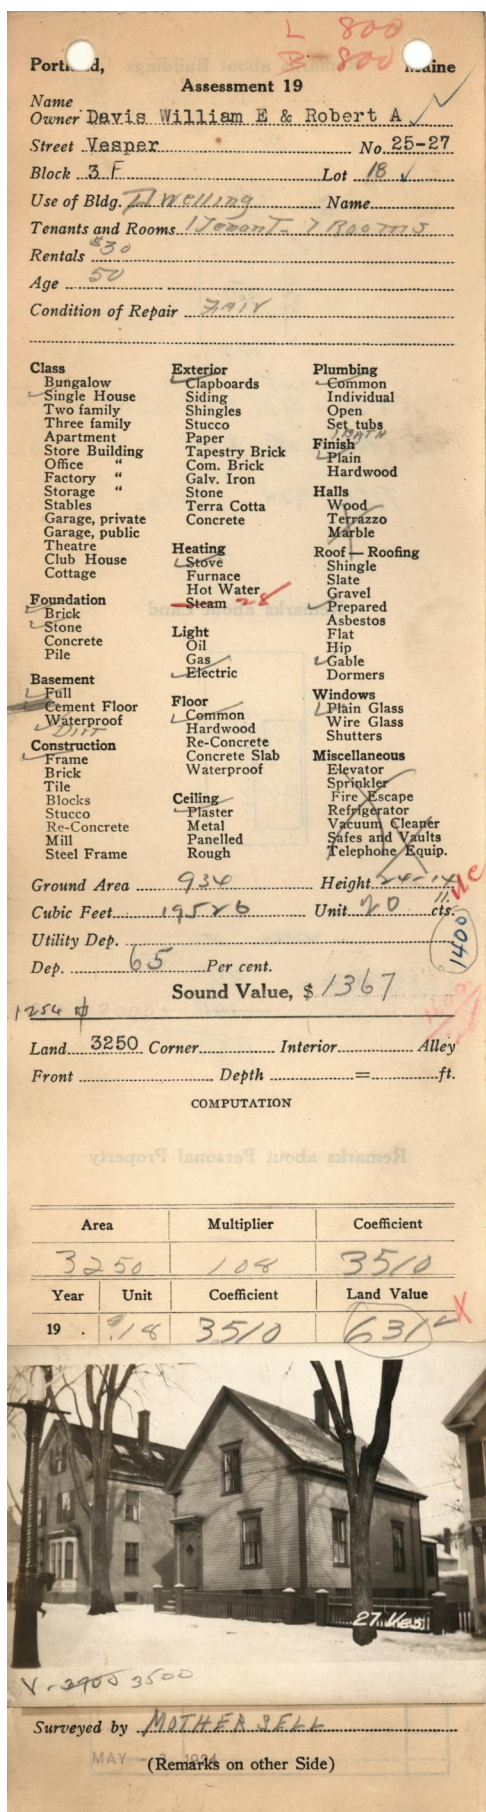 L 800
B - 800
Portland, Maine
Assessment 19
Name
Owner Davis William E & Robert A
Street Vesper No. 25-27
Block 3 F Lot 18
Use of Bldg. Dwelling Name
Tenants and Rooms 1 Tenant - 7 Rooms
Rentals $30
Age 50
Condition of Repair Fair
Class
Bungalow
Single House
Two family
Three family
Apartment
Store Building
Office "
Factory "
Storage "
Stables
Garage, private
Garage, public
Theatre
Club House
Cottage
Foundation
Brick
Stone
Concrete
Pile
Basement
Full
Cement Floor
Waterproof
Dirt
Construction
Frame
Brick
Tile
Blocks
Stucco
Re-Concrete
Mill
Steel Frame
Exterior
Clapboards
Siding
Shingles
Stucco
Paper
Tapestry Brick
Com. Brick
Galv. Iron
Stone
Terra Cotta
Concrete
Heating
Stove
Furnace
Hot Water
Steam 28
Light
Oil
Gas
Electric
Floor
Common
Hardwood
Re-Concrete
Concrete Slab
Waterproof
Ceiling
Plaster
Metal
Panelled
Rough
Plumbing
Common
Individual
Open
Set tubs
1 Bath
Finish
Plain
Hardwood
Halls
Wood
Terrazzo
Marble
Roof — Roofing
Shingle
Slate
Gravel
Prepared
Asbestos
Flat
Hip
Gable
Dormers
Windows
Plain Glass
Wire Glass
Shutters
Miscellaneous
Elevator
Sprinkler
Fire Escape
Refrigerator
Vacuum Cleaner
Safes and Vaults
Telephone Equip.
Ground Area 934 Height 24-14
Cubic Feet 19526 Unit 20 cts.
Utility Dep.
1400
Dep. 65 Per cent.
Sound Value, $ 1367
1254
Land 3250 Corner Interior Alley
Front Depth = ft.
COMPUTATION
Area Multiplier Coefficient
3250 108 3510
Year Unit Coefficient Land Value
19 . 18 3510 631
27 Ves
V - 2900 3500
Surveyed by MOTHERSELL
(Remarks on other Side)